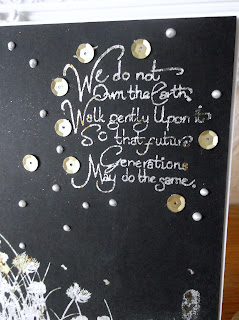 We do not
Own the Earth,
Walk gently Upon it
So that future
Generations
May do the same.